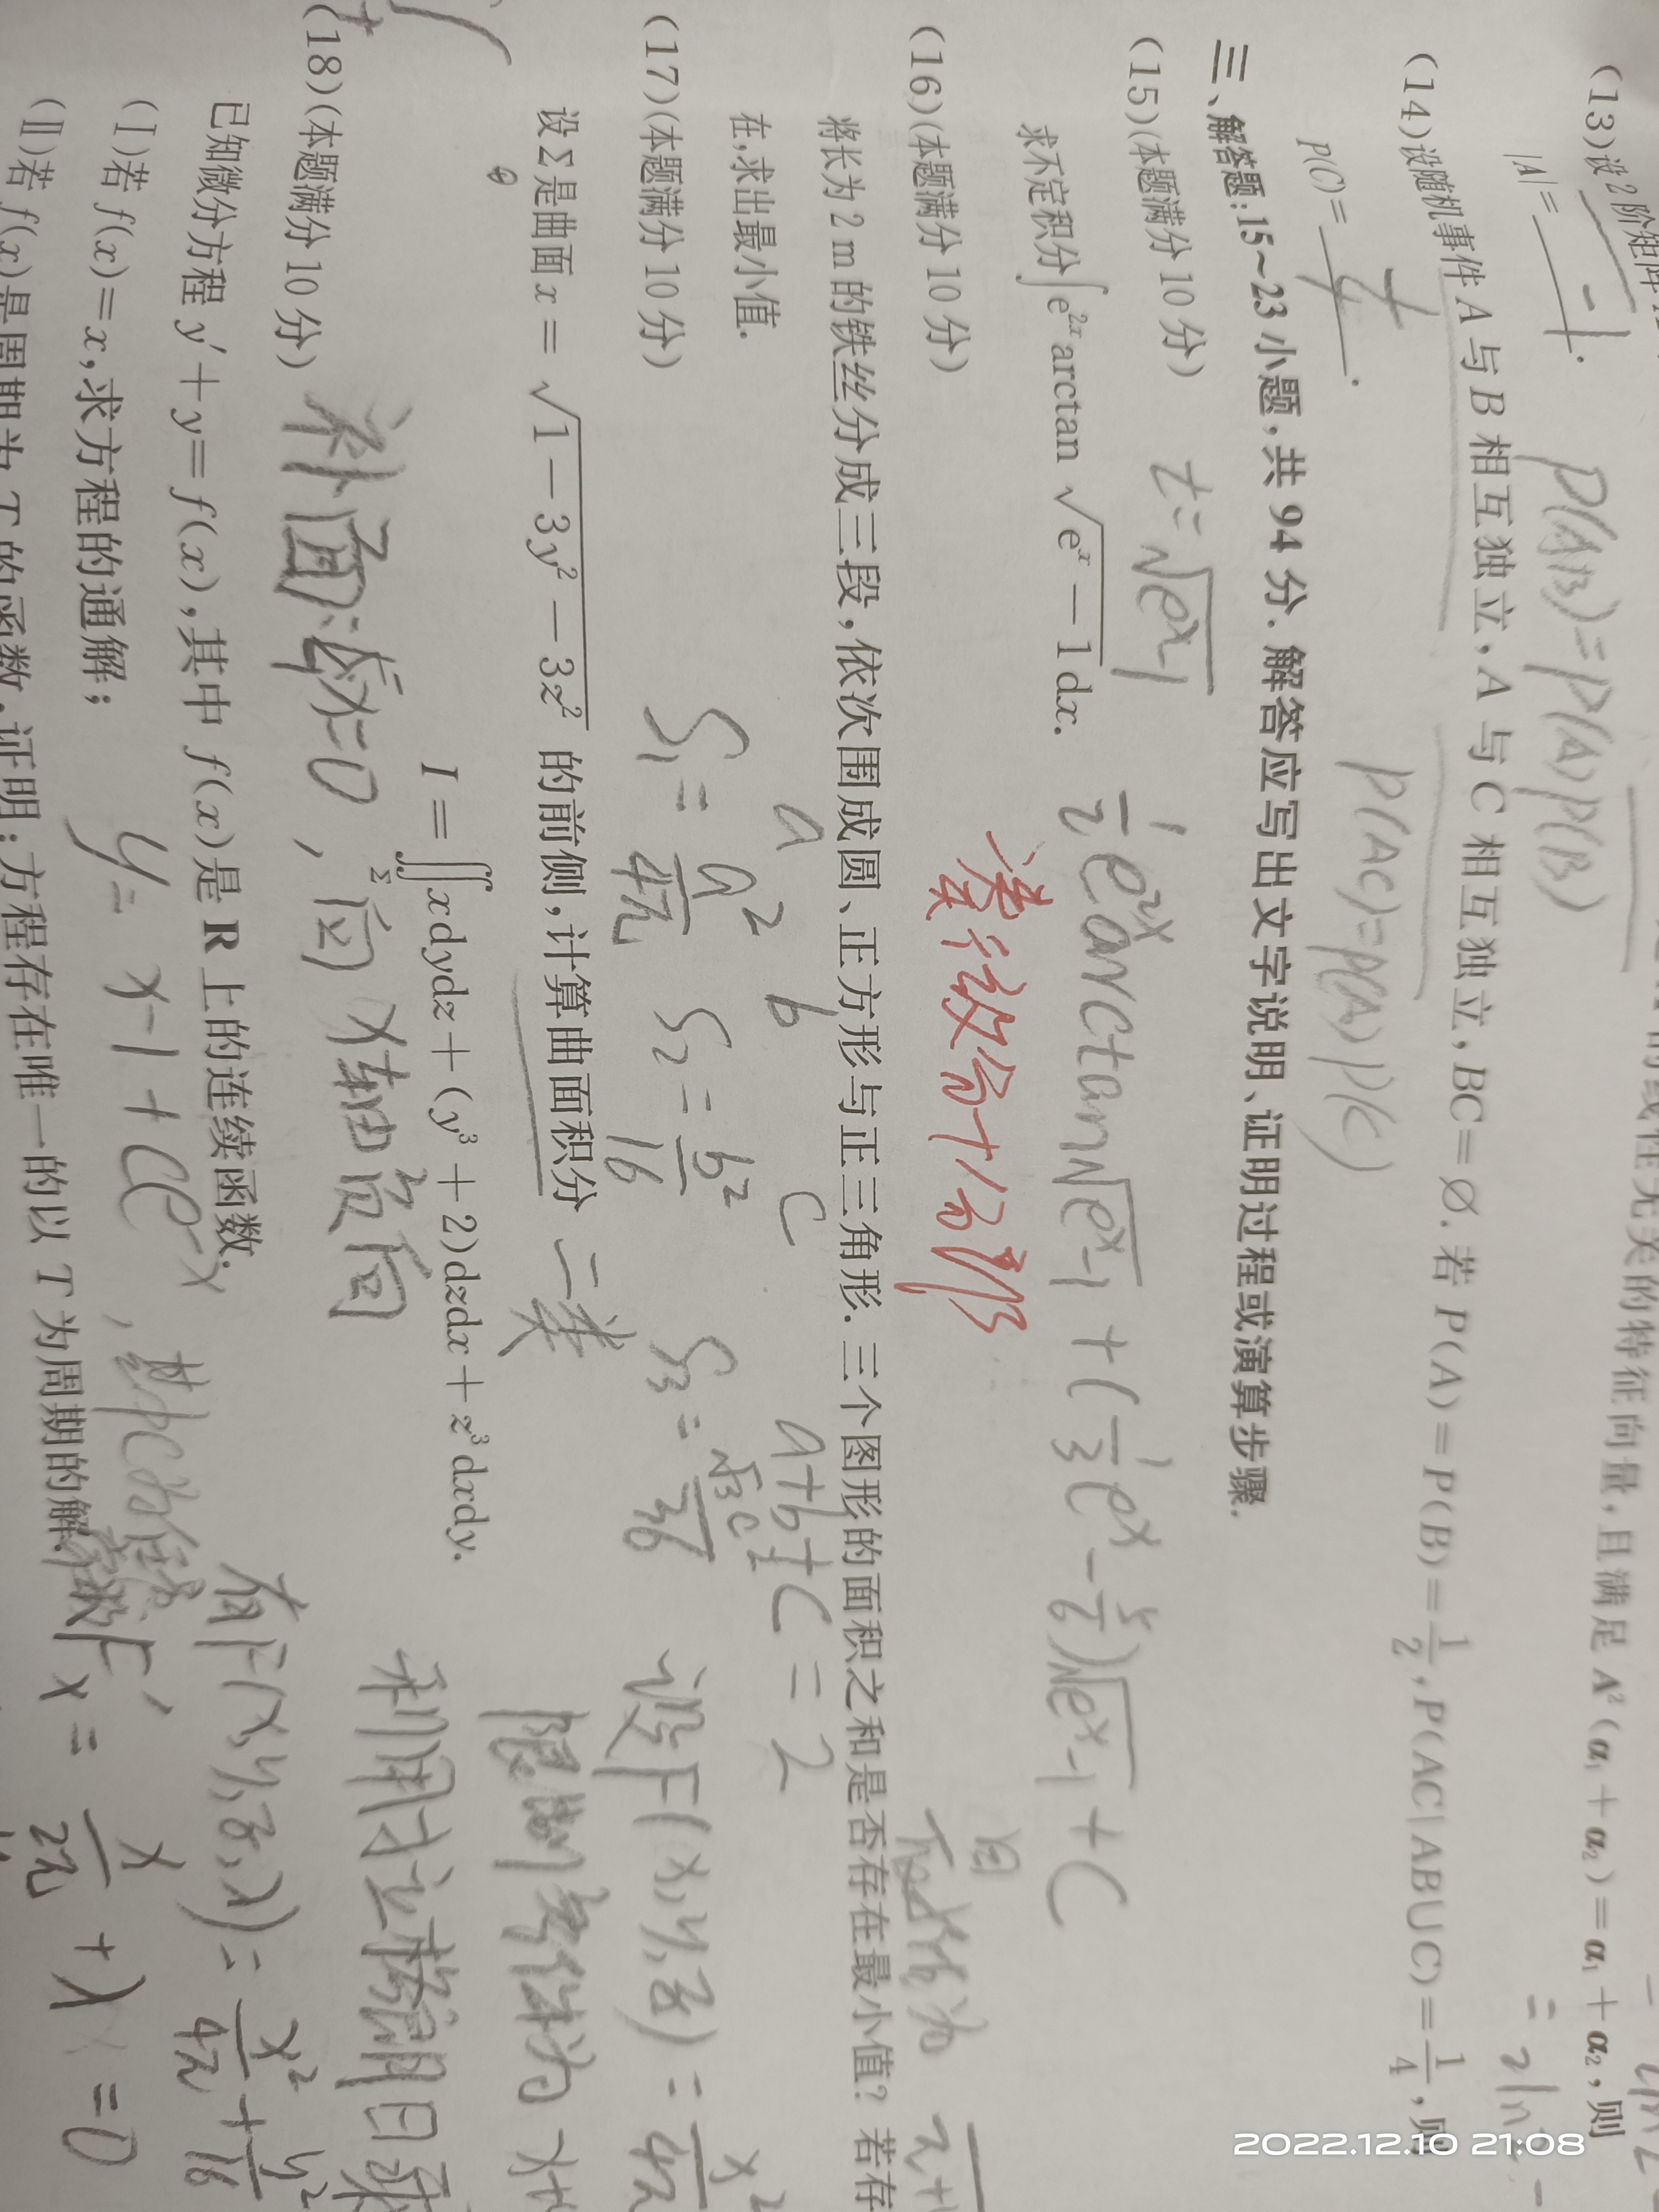 (13)设2阶矩阵A
的线性无关的特征向量,且满足A²(α₁+α₂)=α₁+α₂,则
|A|=
-1
.
P(AB)=P(A)P(B)
(14)设随机事件A与B相互独立,A与C相互独立,BC=∅.若P(A)=P(B)=1/2,P(AC|AB∪C)=1/4,则
P(C)=
1/4
.
P(AC)=P(A)P(C)
三、解答题:15~23小题,共94分.解答应写出文字说明、证明过程或演算步骤.
(15)(本题满分10分)
t=√(eˣ-1)
求不定积分∫e²ˣarctan√(eˣ-1)dx.
1/2 e²ˣarctan√(eˣ-1)+(1/3 eˣ-5/6)√(eˣ-1)+C
凑微分+分部
(16)(本题满分10分)
将长为2m的铁丝分成三段,依次围成圆、正方形与正三角形.三个图形的面积之和是否存在最小值?若存
在,求出最小值.
a b c a+b+c=2
S₁=a²/4π S₂=b²/16 S₃=√3c²/36
设F(x,y,z)=x²/4π
(17)(本题满分10分)
设Σ是曲面x=√(1-3y²-3z²)的前侧,计算曲面积分
二类
限制条件为x+
I=∬_Σ xdydz+(y³+2)dzdx+z³dxdy.
补面:x=0,向x轴负向
利用拉格朗日乘
(18)(本题满分10分)
有F(x,y,z,λ)=x²/4π+y²/16
已知微分方程y′+y=f(x),其中f(x)是R上的连续函数.
(Ⅰ)若f(x)=x,求方程的通解;
y=x-1+Ce⁻ˣ,其中C为任意常数
F′x=x/2π+λ=0
(Ⅱ)若f(x)是周期为T的函数,证明:方程存在唯一的以T为周期的解.
2022.12.10 21:08